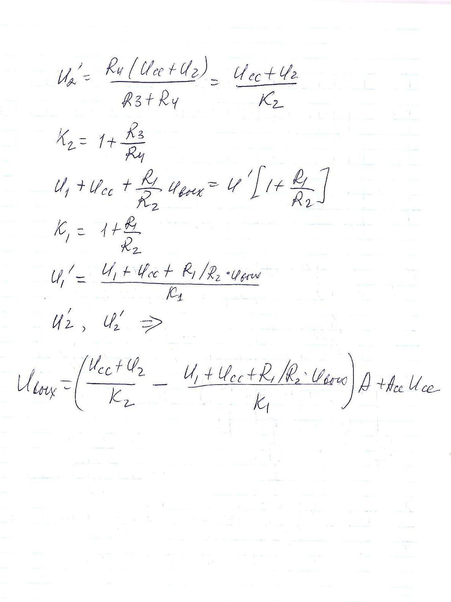 U₂' = R4(Ucc+U2)/(R3+R4) = (Ucc+U2)/K2
K2 = 1+R3/R4
U1+Ucc+R1/R2 Uвых = U'[1+R1/R2]
K1 = 1+R1/R2
U1' = (U1+Ucc+R1/R2·Uвых)/K1
U2', U2' ⇒
Uвых = ((Ucc+U2)/K2 − (U1+Ucc+R1/R2·Uвых)/K1)A+AccUcc